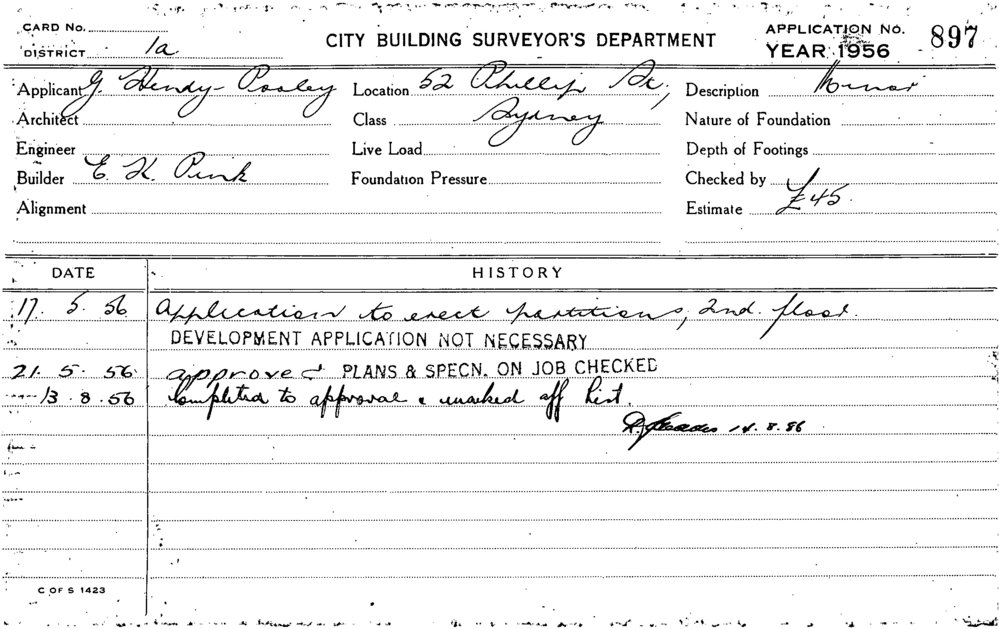 CARD No.
DISTRICT 1a
CITY BUILDING SURVEYOR'S DEPARTMENT
APPLICATION No. 897
YEAR 1956
Applicant G. Hendy-Pooley
Location 52 Phillip St,
Description Minor
Architect
Class Sydney
Nature of Foundation
Engineer
Live Load
Depth of Footings
Builder E. K. Pink
Foundation Pressure
Checked by
Alignment
Estimate £45.
DATE
HISTORY
17. 5. 56 Application to erect partitions, 2nd. floor.
DEVELOPMENT APPLICATION NOT NECESSARY
21. 5. 56 approved PLANS & SPECN. ON JOB CHECKED
13. 8. 56 Completed to approval & marked off List.
14. 8. 56
C OF S 1423